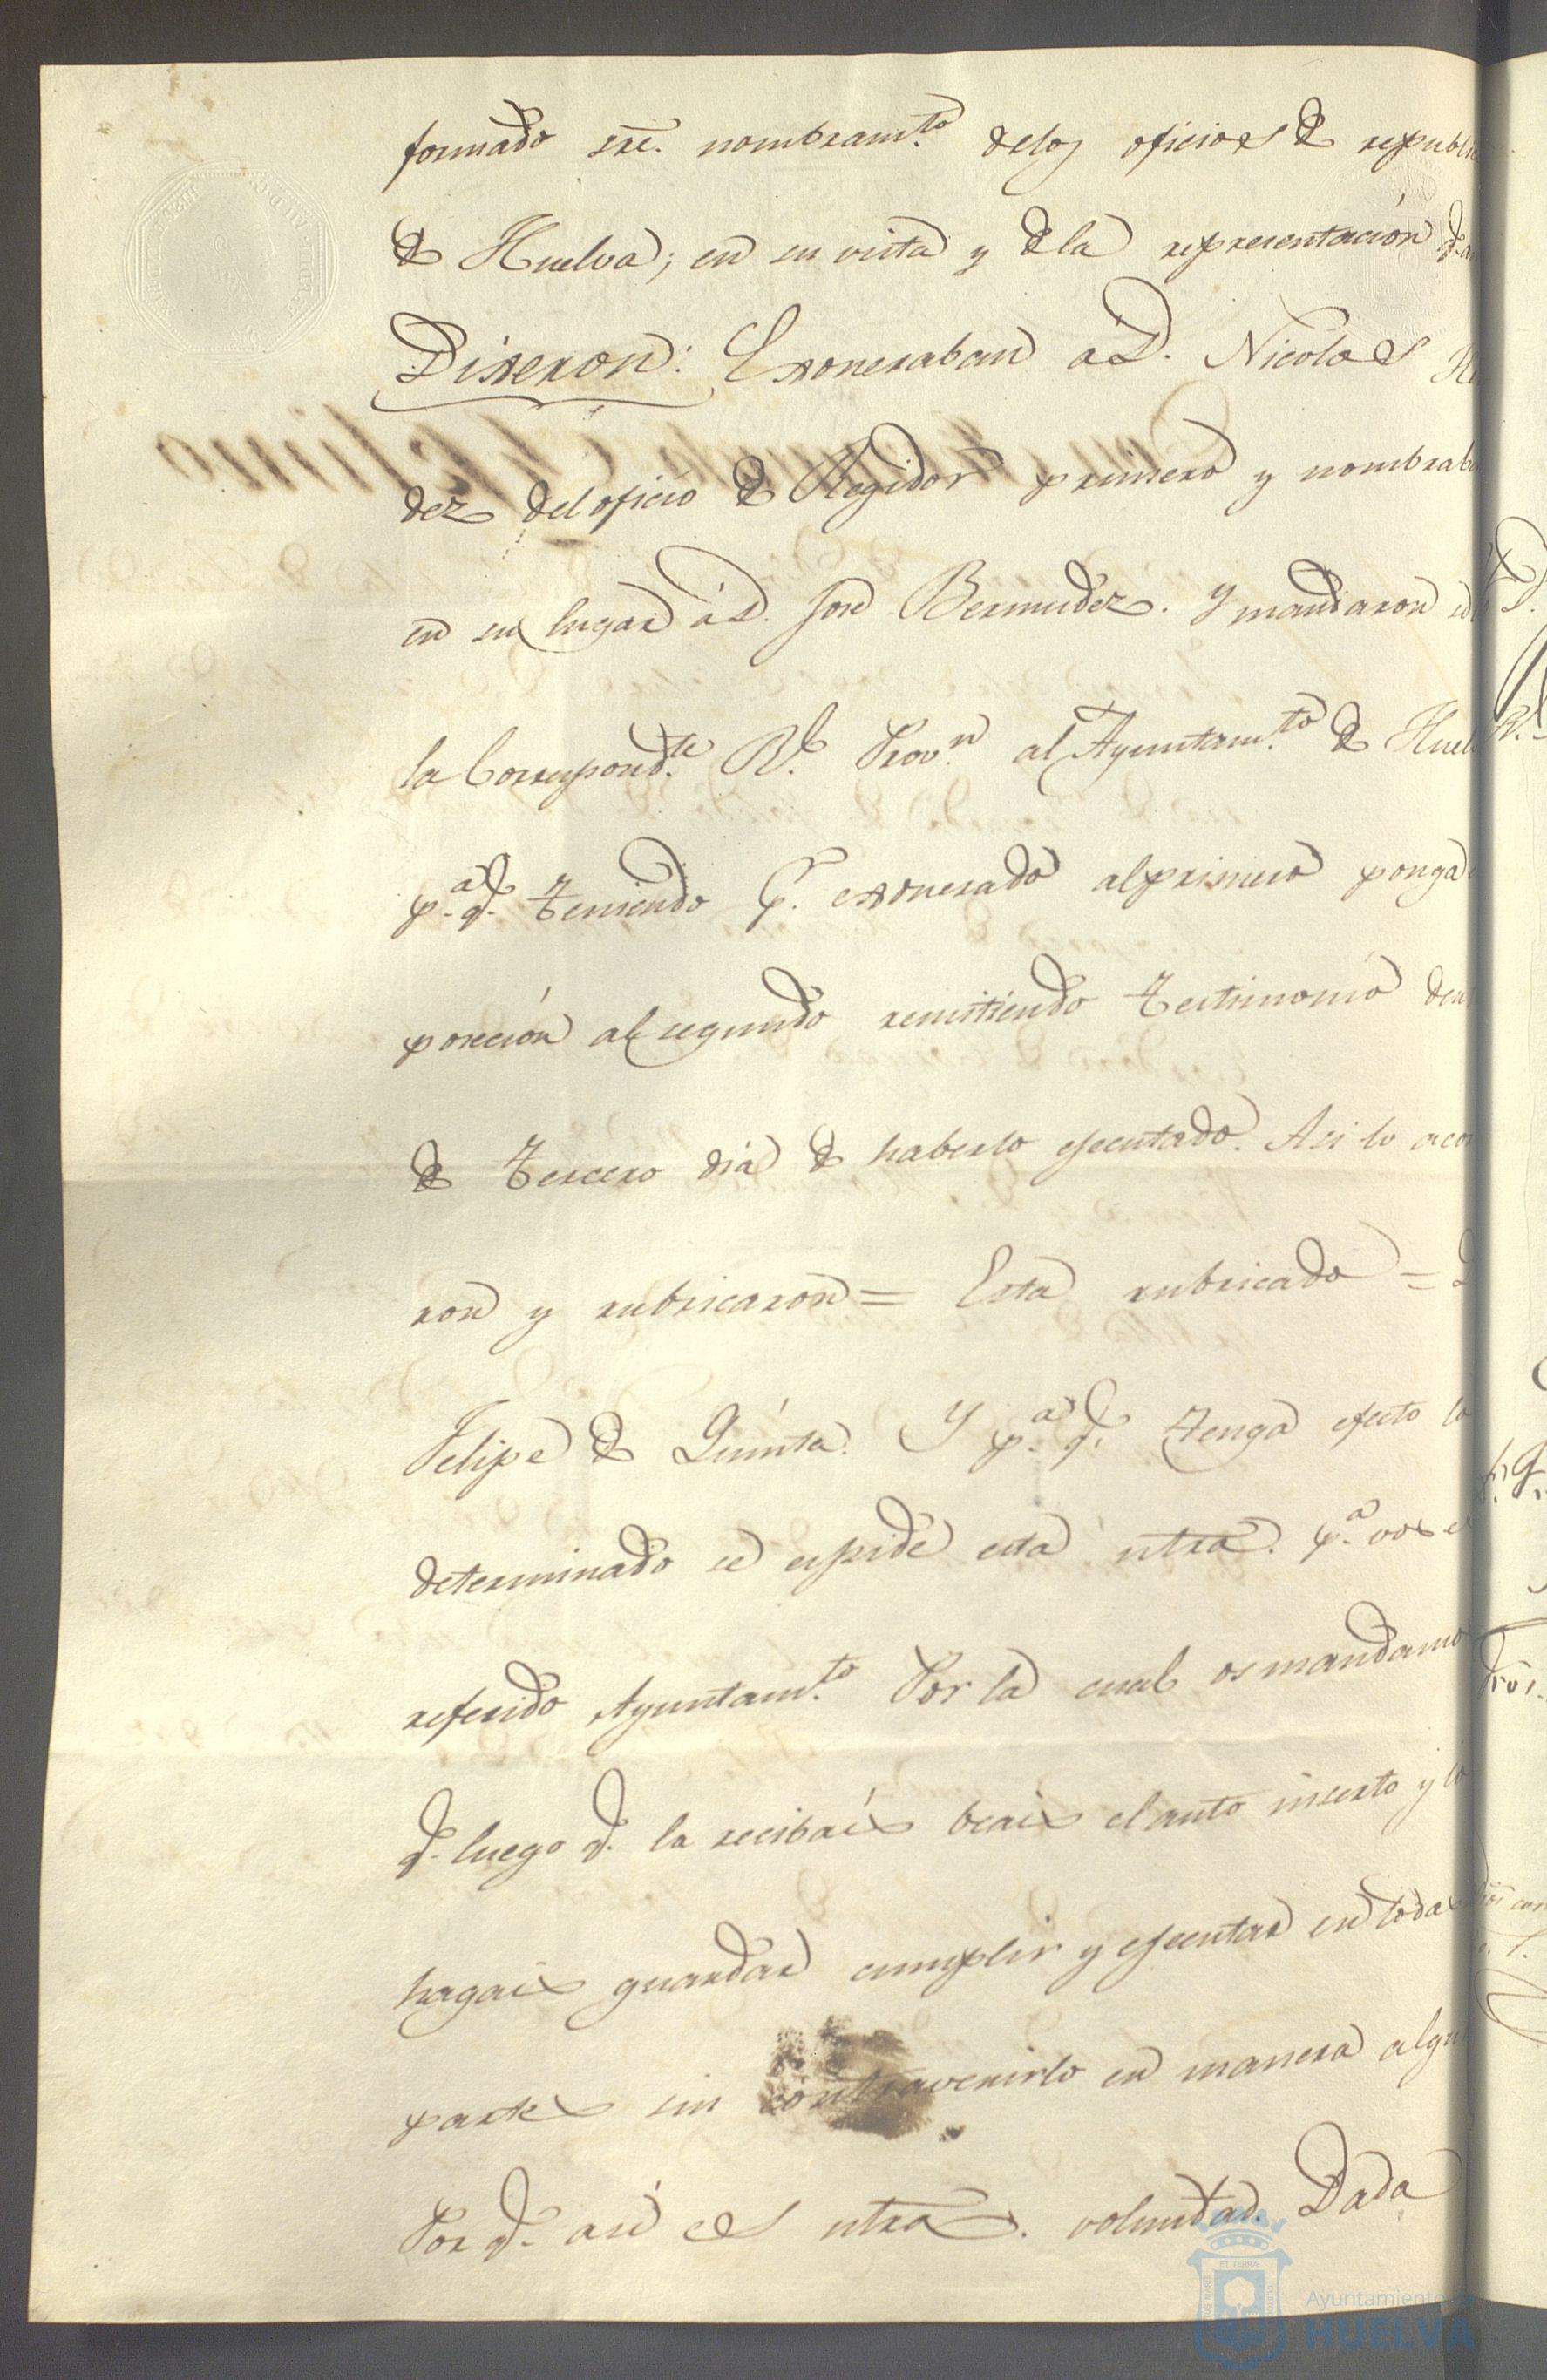 formado sre. nombramto. delos oficios de republi
de Huelva; en su vista y dela representación
Dixeron: Exoneraban a D. Nicolas
dez del oficio de Regidor primero y nombraba
en su lugar á D. José Bermudez. Y mandaron
la Correspondte. Rl. Provn. al Ayuntamto. de Huel
pa. q. teniendo pr. exonerado al primero ponga
posesión al segundo remitiendo testimonio den
de tercero dia de haberlo ejecutado. Asi lo acor
ron y rubricaron = Esta rubricado =
Felipe de Quinta. Y pa. q. tenga efecto lo
determinado se espide esta ntra. pa. vos el
referido Ayuntamto. Por la cual os mandamo
q. luego q. la recibais beais el auto inserto y lo
hagais guardar cumplir y ejecutar en todas
partes sin contravenirlo en manera algu
Por q. asi es ntra. voluntad. Dada
Ayuntamiento
HUELVA